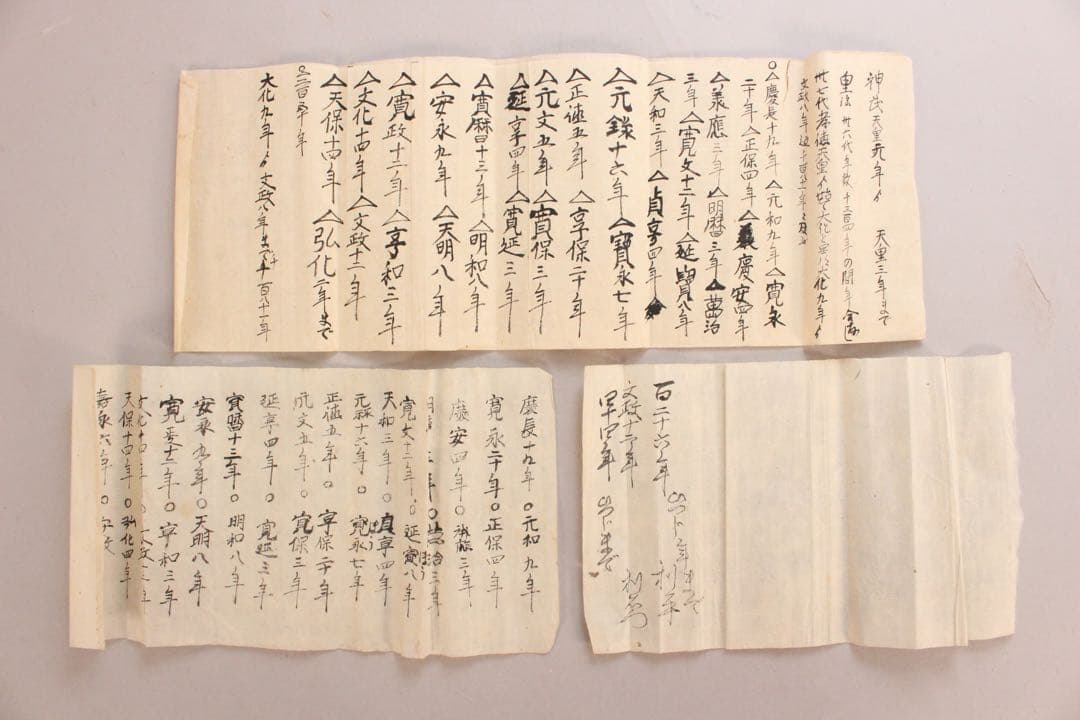 神武天皇元年ゟ 天皇三年まで
皇法 卅六代年数千三百四年の間年合
卅七代孝徳天皇ゟ始て大化と云大化九年ゟ
文政八年迄千百八十一年
○△慶長十九年△元和九年△寛永
二十年△正保四年△慶安四年
△義應三年△明暦三年▲萬治
三年△寛文十二年△延寶八年
△天和三年△貞享四年
△元録十六年△寳永七年
△正徳五年△享保二十年
△元文五年△寛保三年
△延享四年△寛延三年
△寳暦日十三年△明和八年
△安永九年△天明八年
△寛政十二年△享和三年
△文化十四年△文政十二年
△天保十四年△弘化二年まで
○二百五十年
大化九年ゟ文政八年まで千百八十一年
慶長十九年○元和九年
寛永二十年○正保四年
慶安四年○三年
三年○萬治三年
寛文十二年○延寳八年
天和三年○貞享四年
元禄十六年○寳永七年
正徳五年○享保二十年
元文五年○寛保三年
延享四年○寛延三年
寳暦十三年 明和八年
安永九年○天明八年
寛政十二年○享和三年
文化十四年○文政十二年
天保十四年○弘化四年
嘉永六年○安政
百二十六年
文政十二年
四十四年